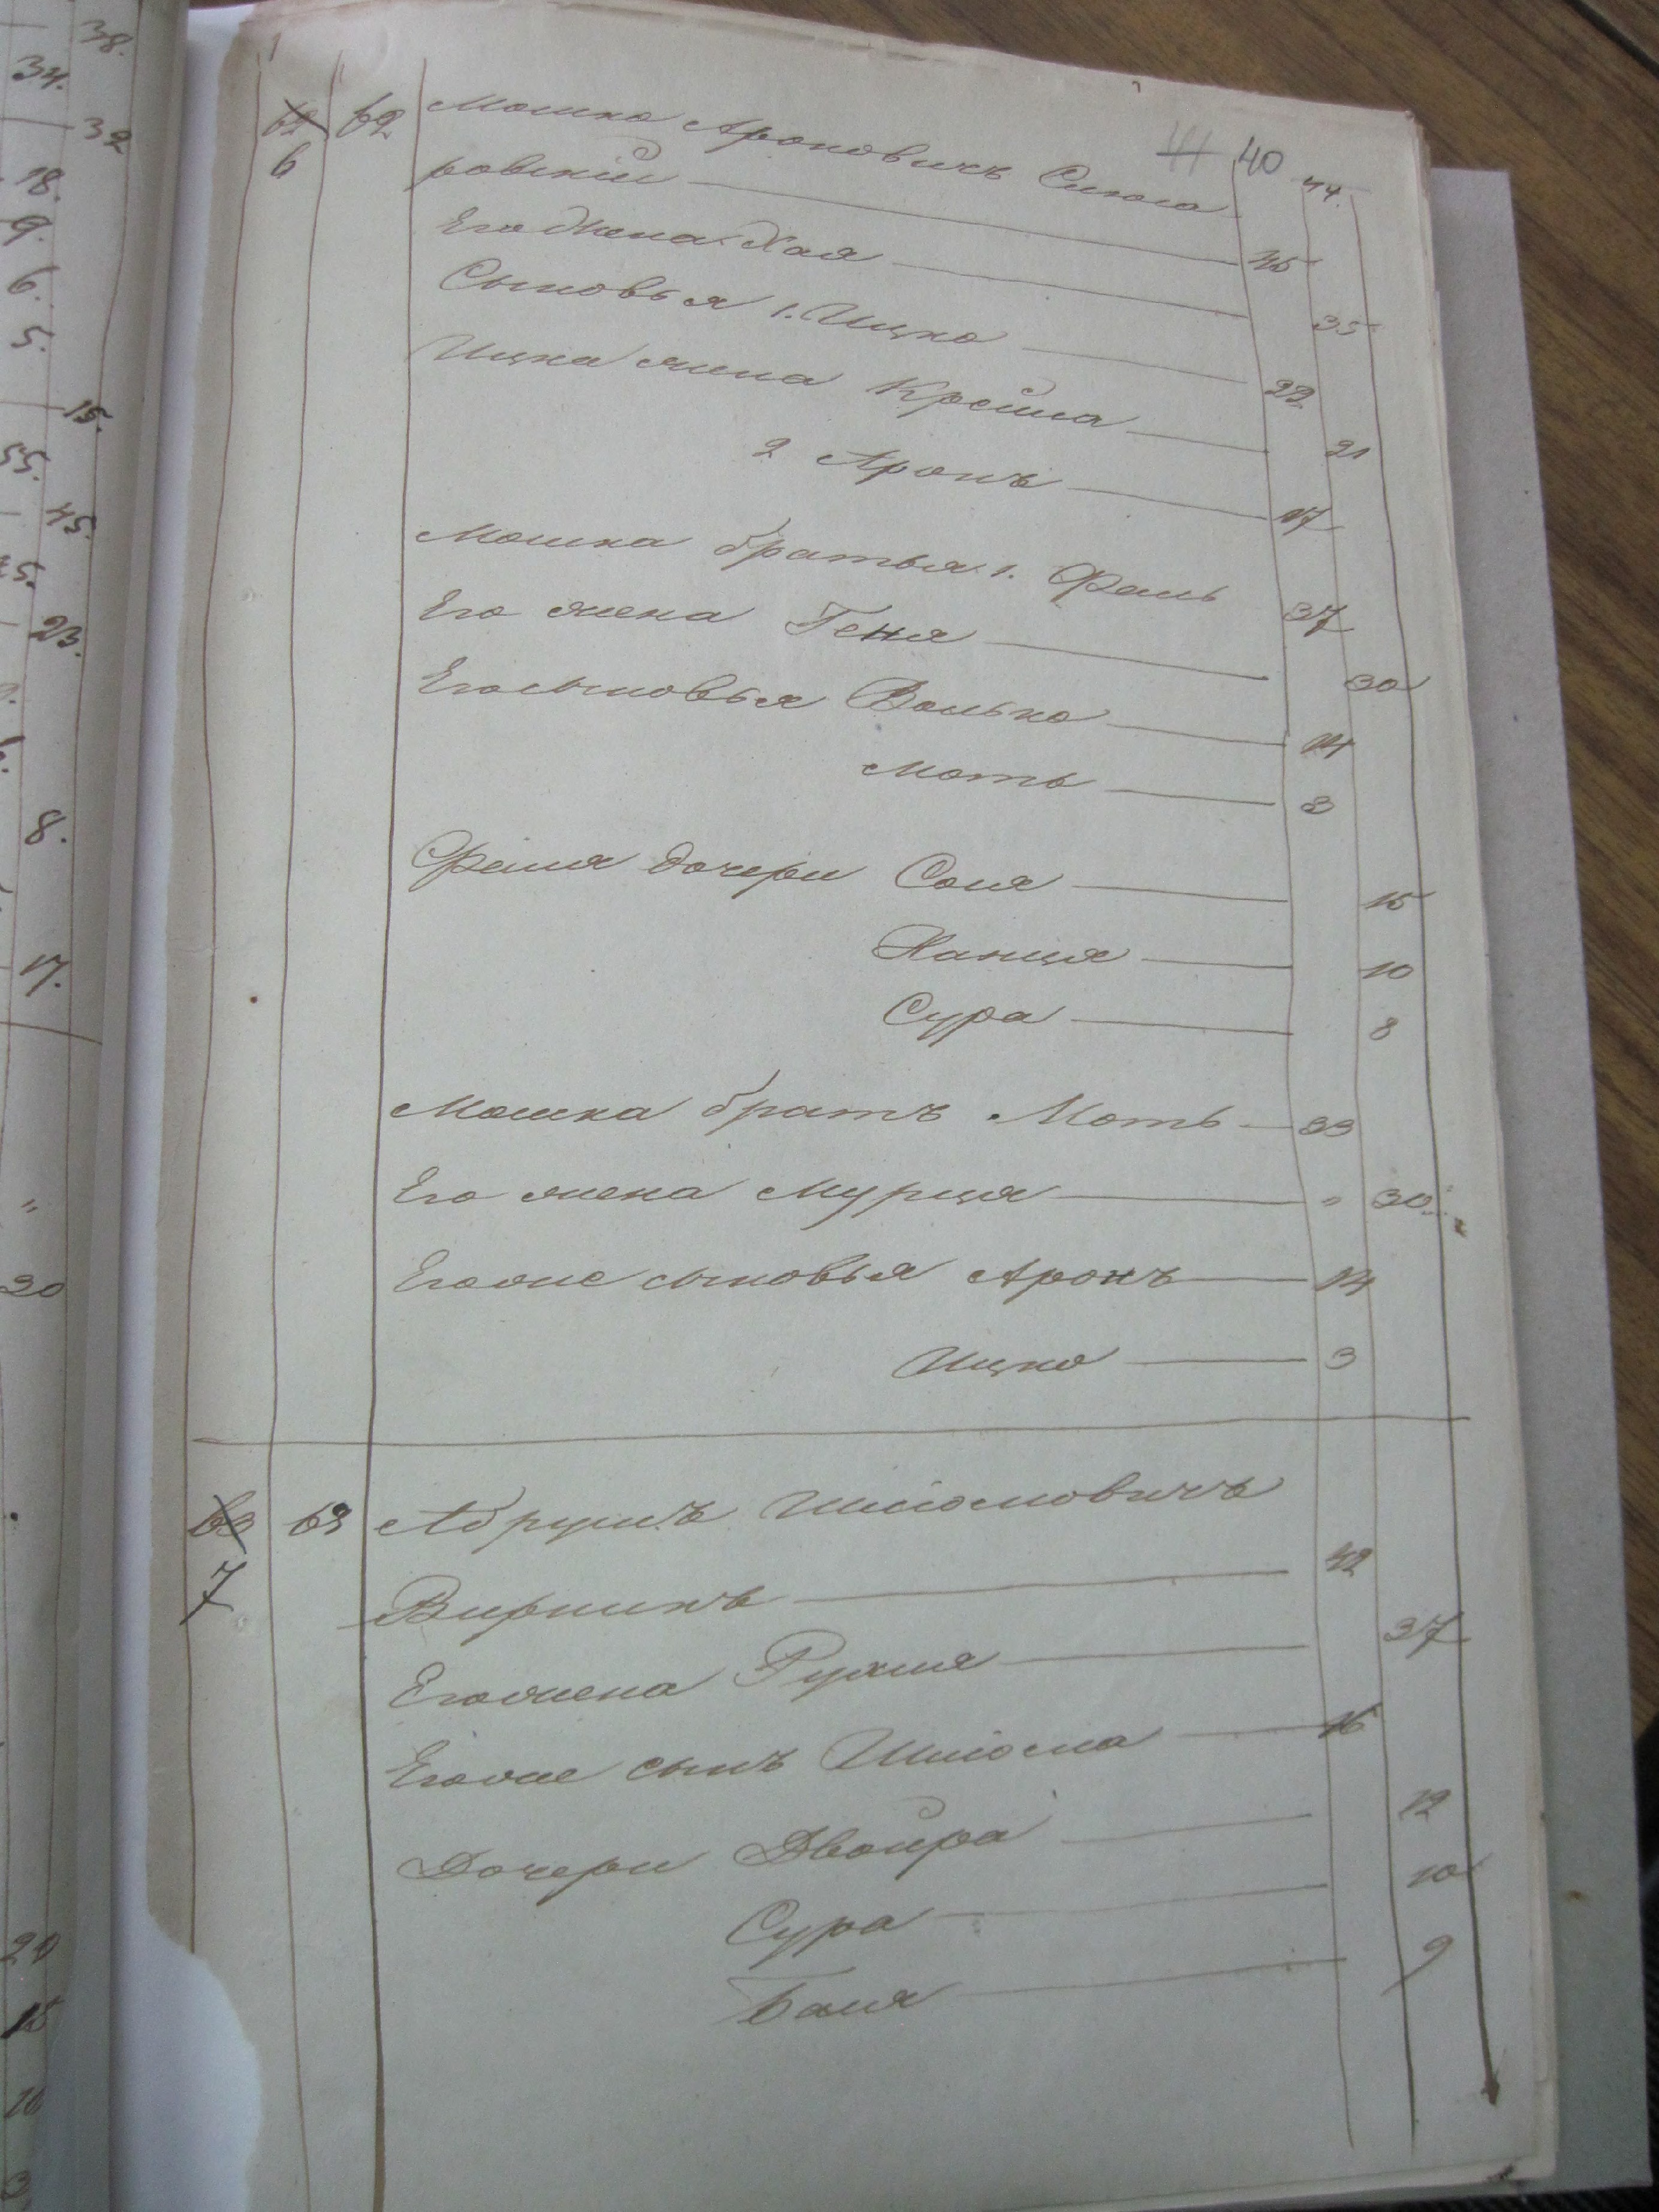 41 40 44.
62 62 Мошко Ароновичъ Смоля
6 ровскій 45
Его Жена Хая 35
Сыновья 1. Ицко 22
Ицка жена Крейна 21
2 Аронъ 17
Мошка братья 1. Фаль 37
Его жена Геня 30
Его сыновья Волько 14
Моть 3
дочери Соня 15
Ханця 10
Сура 8
Мошка братъ Моть 33
Его жена Мурця " 30
Его же сыновья Аронъ 14
Ицко 3
63 63 Абрумъ Шліомовичъ
7 Вирникъ 42
Его жена Рухля 37
Его же сынъ Шліома 16
Дочери Двойра 12
Сура 10
Баня 9
38.
34.
32
18.
9.
6.
5.
15.
55.
45.
23.
8.
17.
"
30